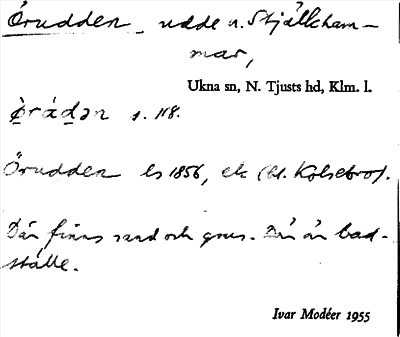 Örudden, udde n. Stjälkham-
mar,
Ukna sn, N. Tjusts hd, Klm. l.
s. 118.
Örudden ls 1856, ek (bl. Kolsebro).
Där finns sand och grus. Där är bad-
ställe.
Ivar Modéer 1955